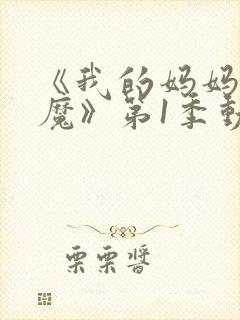 《我的妈妈
魔》第1季動
栗栗醬